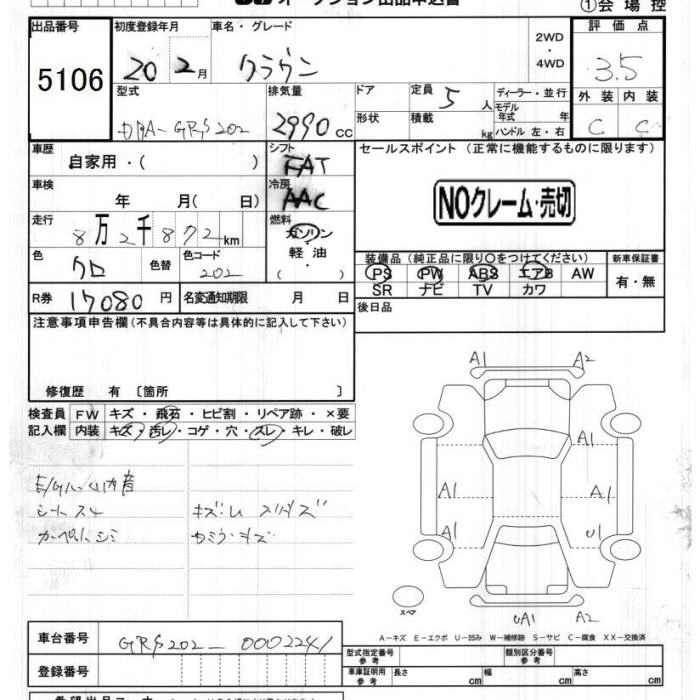 オークション出品申込書
①会場控
出品番号 初度登録年月 車名・グレード 評価点
5106 20 2月 クラウン 2WD ・ 4WD 3.5
型式 排気量 ドア 定員 5人 ディーラー・並行 外装 内装
DBA-GRS202 2990cc 形状 積載 kg モデル年式 年 ハンドル 左・右 C C
車歴 シフト セールスポイント (正常に機能するものに限ります)
自家用・( ) FAT
車検 冷房
年 月( 日) AAC NOクレーム・売切
走行 燃料
8万2千872km ガソリン
軽油
・( )
色 クロ 色替 色コード 202
装備品 (純正品に限り○をつけてください) 新車保証書
PS PW ABS エアB AW 有・無
SR ナビ TV カワ
R券 17080円 名変通知期限 月 日 後日品
注意事項申告欄 (不具合内容等は具体的に記入して下さい)
修復歴 有 〔箇所 〕
検査員 FW キズ・飛石・ヒビ割・リペア跡・×要
記入欄 内装 キズ・汚レ・コゲ・穴・スレ・キレ・破レ
シートスレ
A1 A2
A1
A1 A1
A1 U1
スペア
UA1 A2
A-キズ E-エクボ U-凹み W-補修跡 S-サビ C-腐食 XX-交換済
車台番号 GRS202-0002241
登録番号
型式指定番号 参考 類別区分番号 参考
車庫証明用 参考 長さ cm 幅 cm 高さ cm
希望出品コーナー